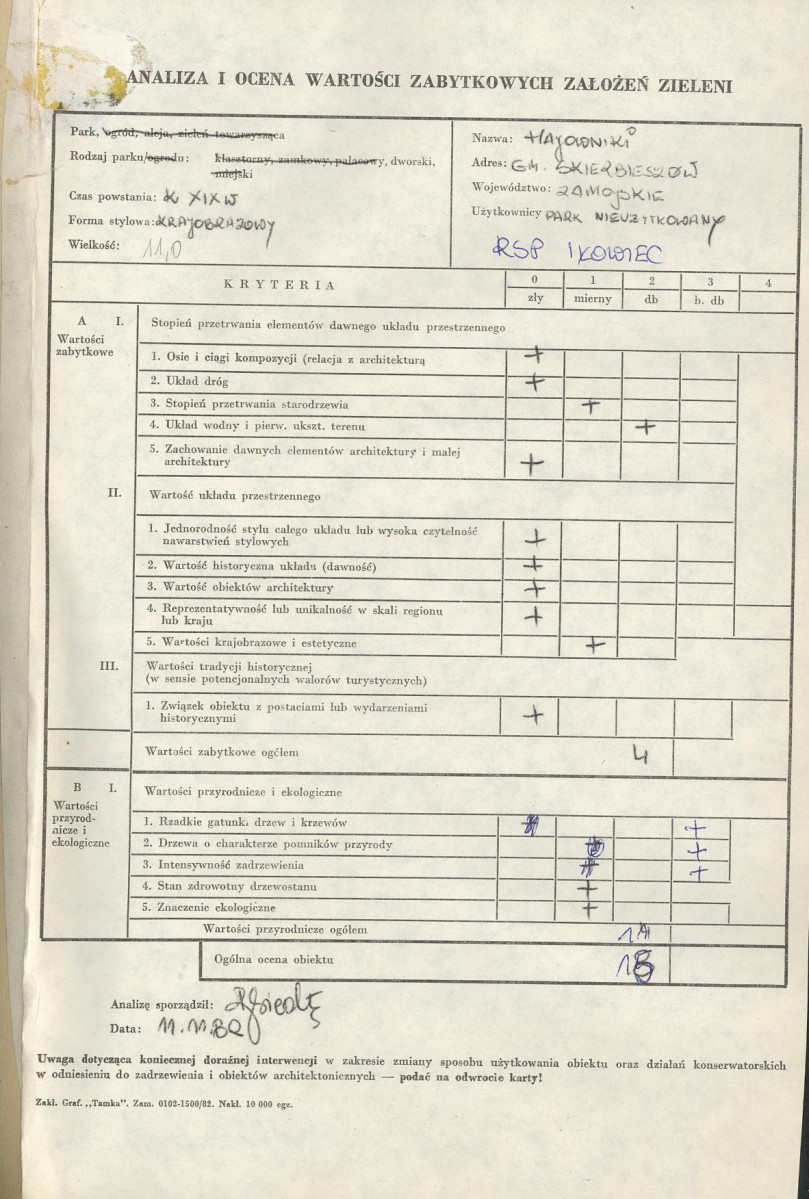 ANALIZA I OCENA WARTOŚCI ZABYTKOWYCH ZAŁOŻEŃ ZIELENI
Park, ogród, aleja, zieleń towarzysząca
Rodzaj parku/ogrodu: klasztorny, zamkowy, pałacowy, dworski,
miejski
Czas powstania: K. XIX W
Forma stylowa: KRAJOBRAZOWY
Wielkość: 11,0
Nazwa: HAJOWNIKI
Adres: GM. SKIERBIESZÓW
Województwo: ZAMOJSKIE
Użytkownicy PARK NIEUŻYTKOWANY
RSP IŁOWIEC
KRYTERIA
0 1 2 3 4
zły mierny db b. db
A I. Stopień przetrwania elementów dawnego układu przestrzennego
Wartości
zabytkowe
1. Osie i ciągi kompozycji (relacja z architekturą +
2. Układ dróg +
3. Stopień przetrwania starodrzewia +
4. Układ wodny i pierw. ukszt. terenu +
5. Zachowanie dawnych elementów architektury i małej
architektury +
II. Wartość układu przestrzennego
1. Jednorodność stylu całego układu lub wysoka czytelność
nawarstwień stylowych +
2. Wartość historyczna układu (dawność) +
3. Wartość obiektów architektury +
4. Reprezentatywność lub unikalność w skali regionu
lub kraju +
5. Wartości krajobrazowe i estetyczne +
III. Wartości tradycji historycznej
(w sensie potencjonalnych walorów turystycznych)
1. Związek obiektu z postaciami lub wydarzeniami
historycznymi +
Wartości zabytkowe ogółem 4
B I. Wartości przyrodnicze i ekologiczne
Wartości
przyrod-
nicze i
ekologiczne
1. Rzadkie gatunki drzew i krzewów +
2. Drzewa o charakterze pomników przyrody +
3. Intensywność zadrzewienia +
4. Stan zdrowotny drzewostanu +
5. Znaczenie ekologiczne +
Wartości przyrodnicze ogółem 11
Ogólna ocena obiektu 15
Analizę sporządził:
Data: 11.11.82
Uwaga dotycząca koniecznej doraźnej interwencji w zakresie zmiany sposobu użytkowania obiektu oraz działań konserwatorskich
w odniesieniu do zadrzewienia i obiektów architektonicznych — podać na odwrocie karty!
Zakł. Graf. „Tamka". Zam. 0102-1500/82. Nakł. 10 000 egz.